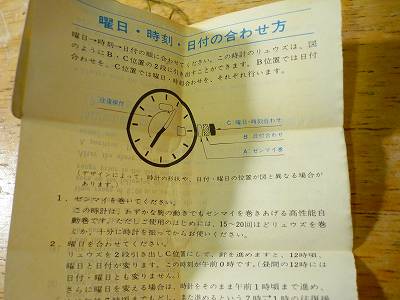 曜日・時刻・日付の合わせ方
曜日→時刻→日付の順に合わせてください。この時計のリュウズは、図
のようにB・C位置の2段に引き出すことができます。B位置では日付
合わせを、C位置では曜日・時刻合わせを、それぞれ行います。
C：曜日・時刻合わせ
B：日付合わせ
A：ゼンマイ巻
(デザインによって、時計の形状や、日付・曜日の位置が図と異なる場合が
あります。)
1．ゼンマイを巻いてください。
この時計は、わずかな腕の動きでもゼンマイを巻きあげる高性能自
動巻です。ただしご使用のはじめには、15～20回ほどリュウズを巻
くか、十分に振ってからお使いください。
2．曜日を合わせてください。
リュウズを2段引き出しC位置にして、針を進めますと、12時頃、
曜日と日付が変ります。この時刻が午前0時です。(昼間の12時には
日付・曜日とも変りません。)
さらに曜日を変える場合は、時計をそのまま午前1時頃まで進め、